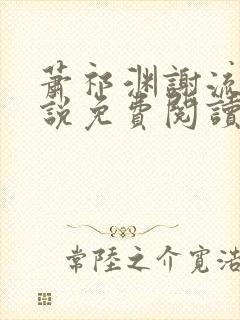 蕭祁渊謝流
說免費閱讀
常陸之介寛浩